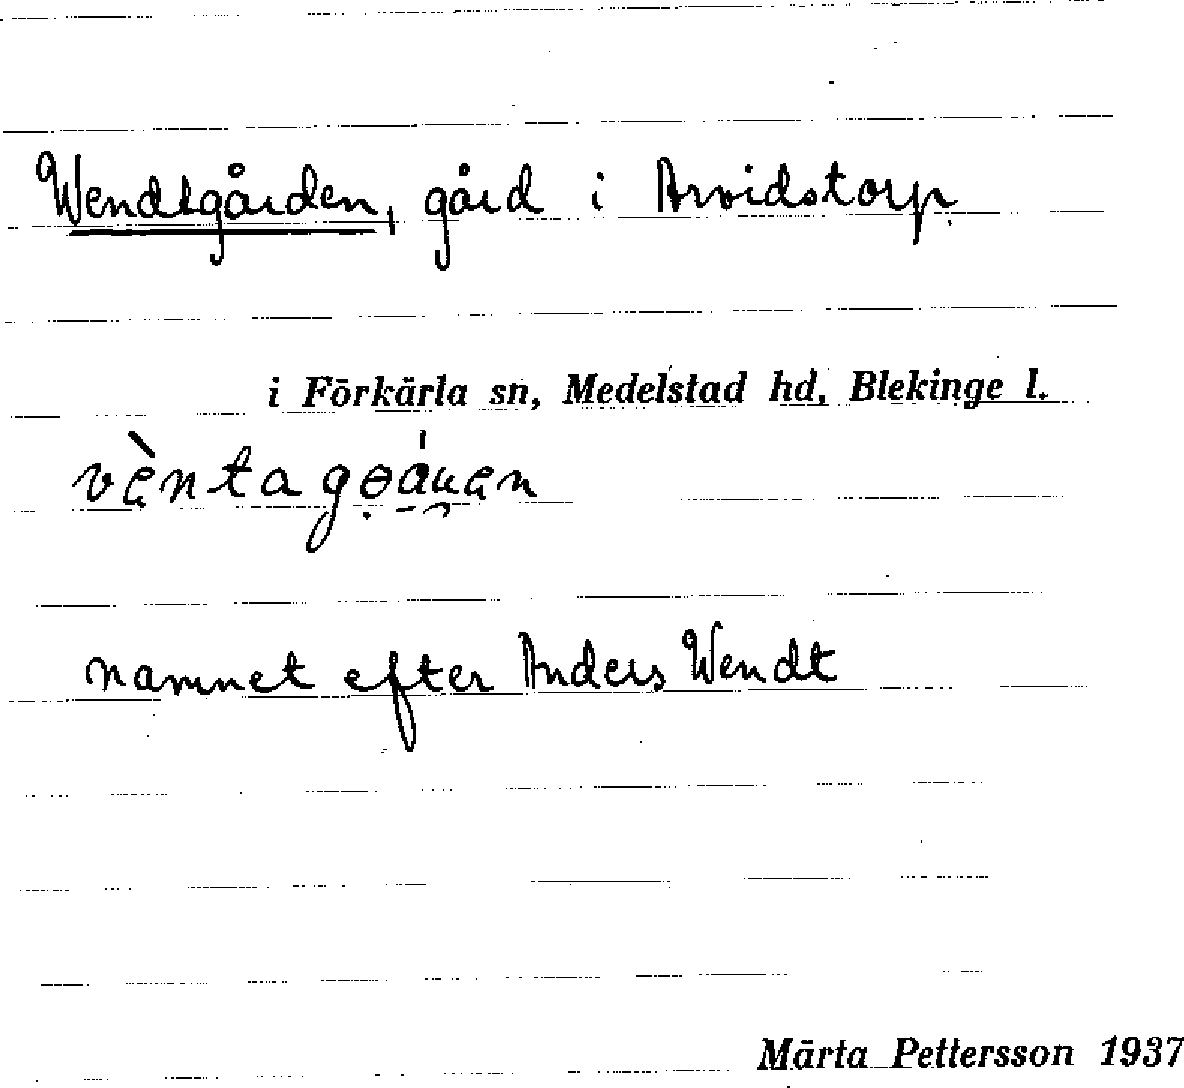 Wendtgården, gård i Arvidstorp
i Förkärla sn, Medelstad hd, Blekinge l.
namnet efter Anders Wendt
Märta Pettersson 1937